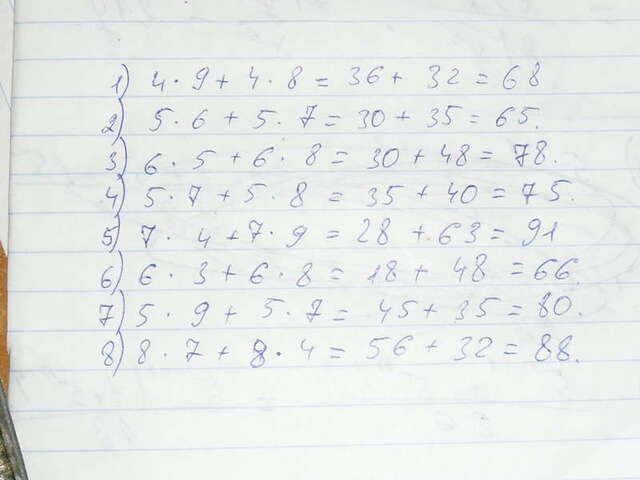 1) 4·9+4·8=36+32=68
2) 5·6+5·7=30+35=65.
3) 6·5+6·8=30+48=78.
4) 5·7+5·8=35+40=75.
5) 7·4+7·9=28+63=91
6) 6·3+6·8=18+48=66.
7) 5·9+5·7=45+35=80.
8) 8·7+8·4=56+32=88.